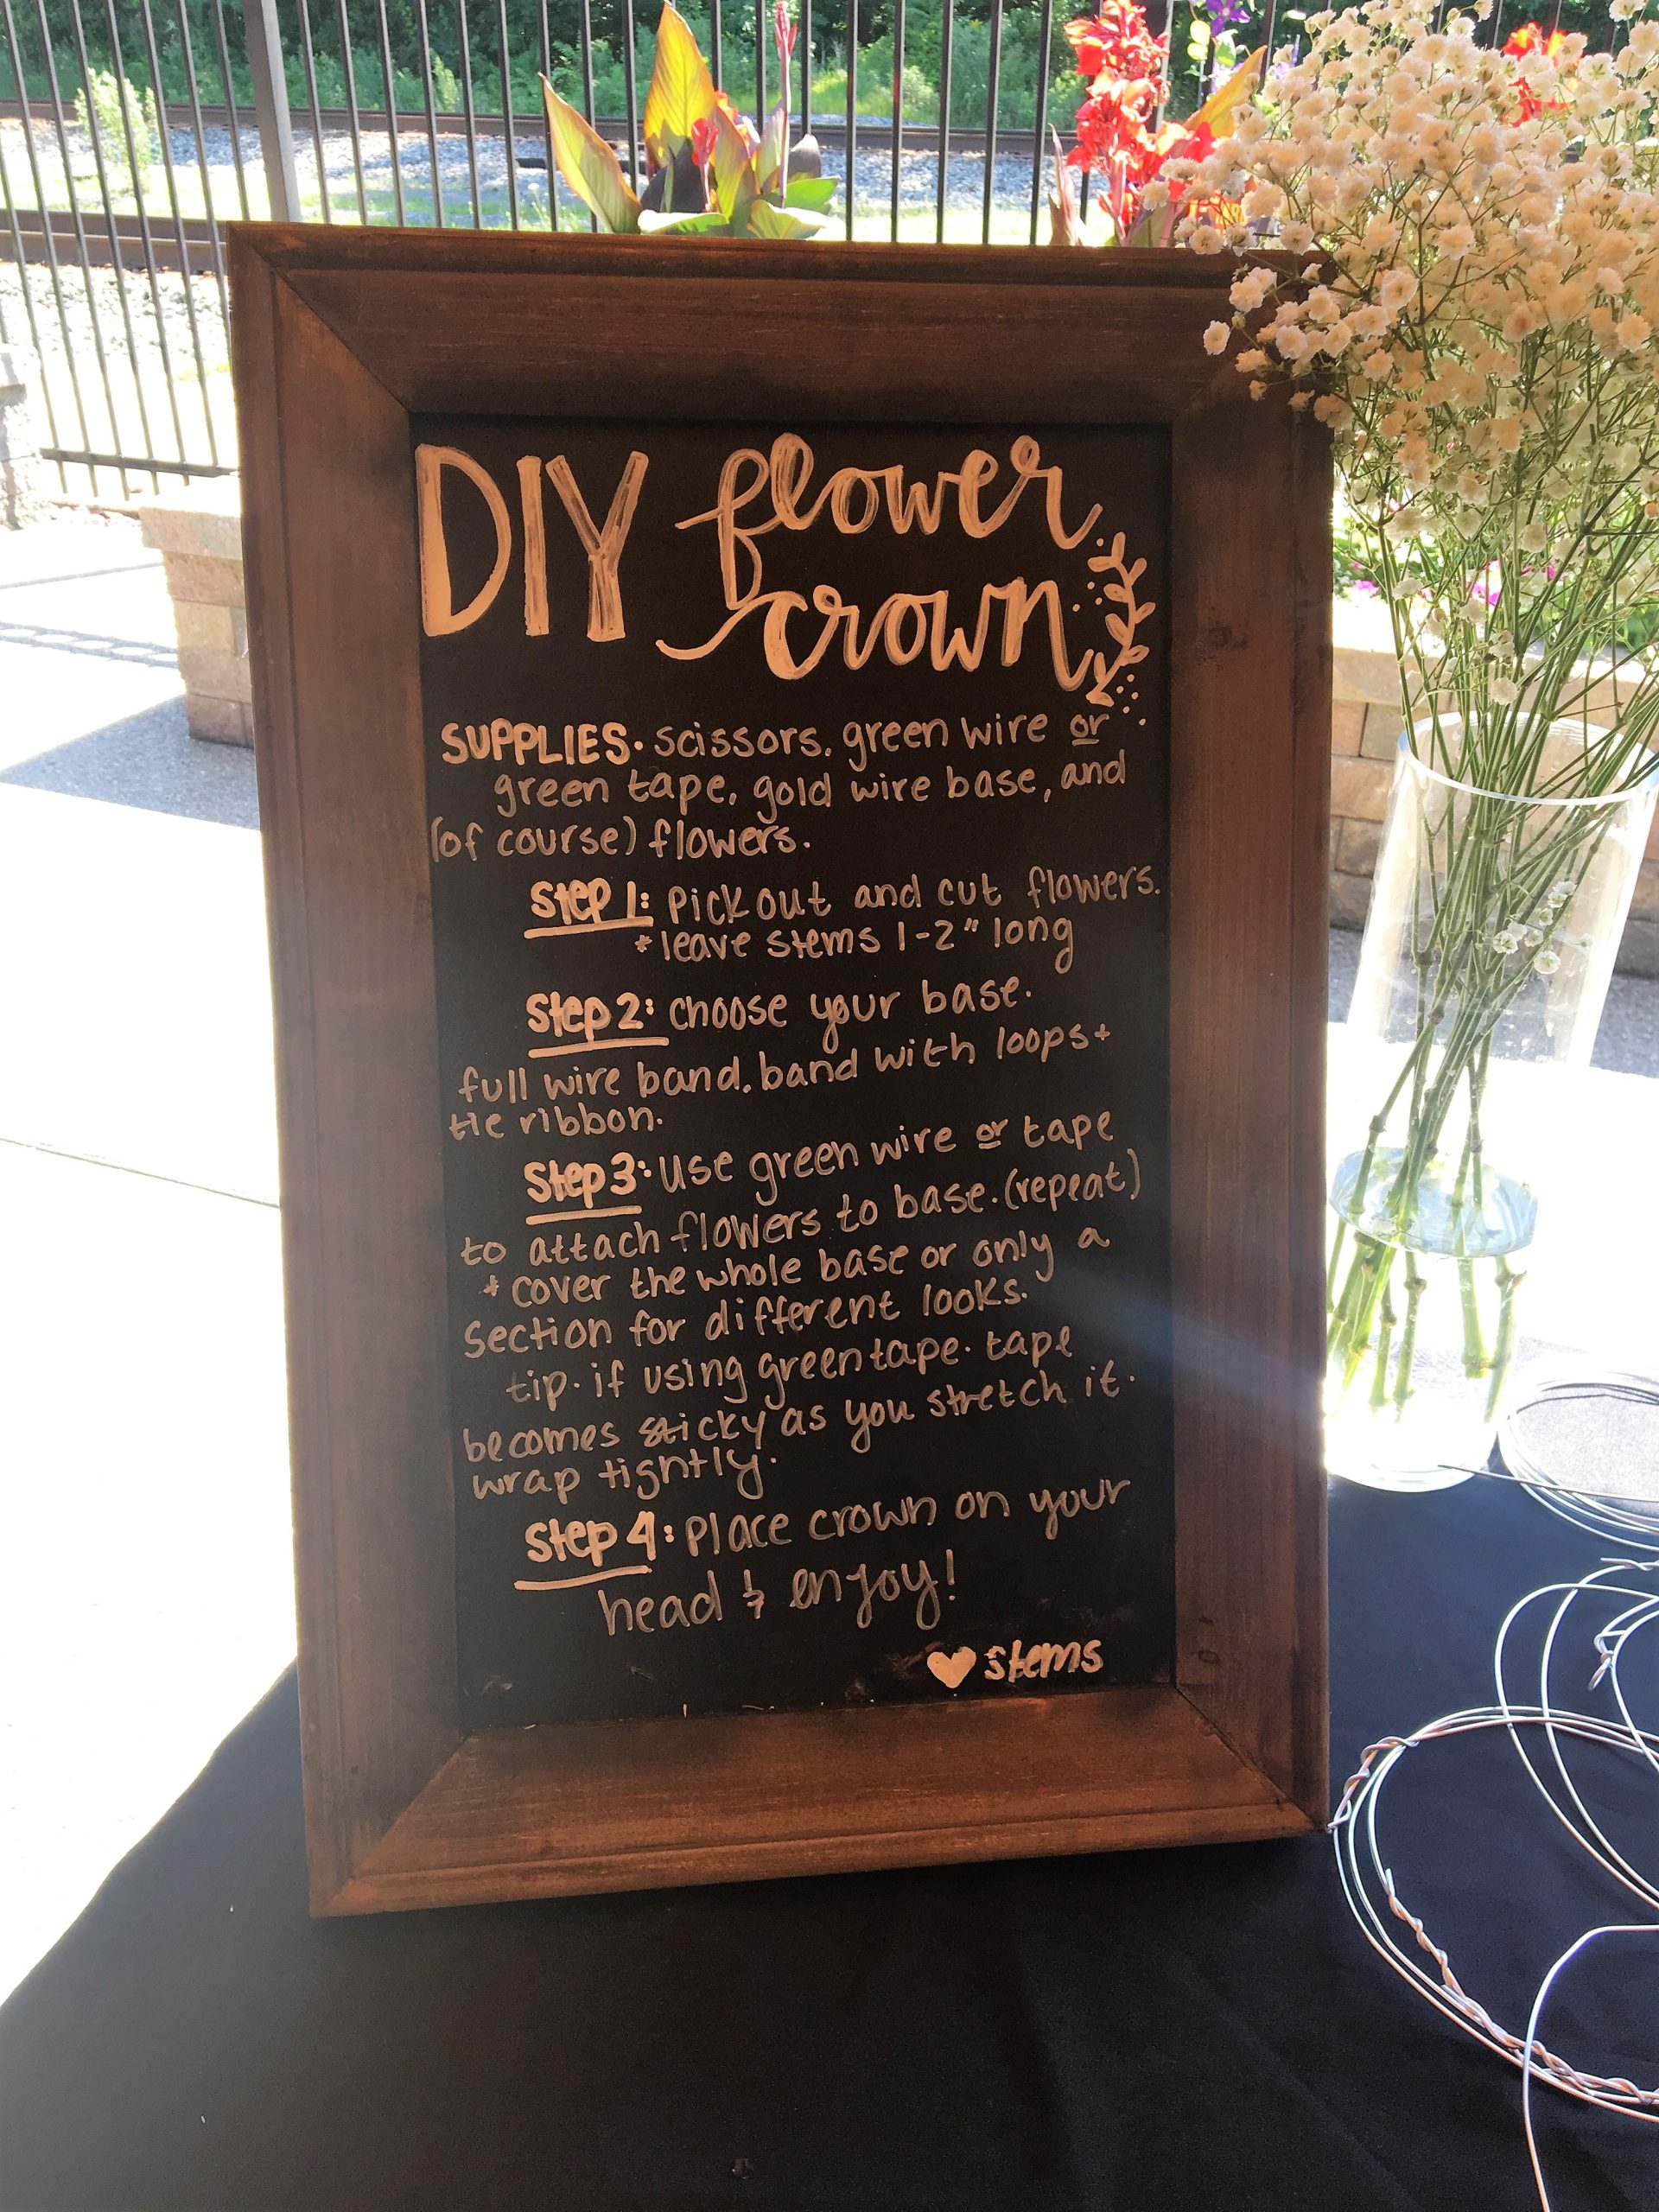 DIY flower
crown
SUPPLIES. scissors, green wire or
green tape, gold wire base, and
(of course) flowers.
Step 1: Pick out and cut flowers.
*leave stems 1-2" long
Step 2: choose your base.
full wire band, band with loops +
tie ribbon.
Step 3: Use green wire or tape
to attach flowers to base. (repeat)
* cover the whole base or only a
section for different looks.
tip. if using green tape. tape
becomes sticky as you stretch it.
wrap tightly.
Step 4: Place crown on your
head & enjoy!
♥ stems